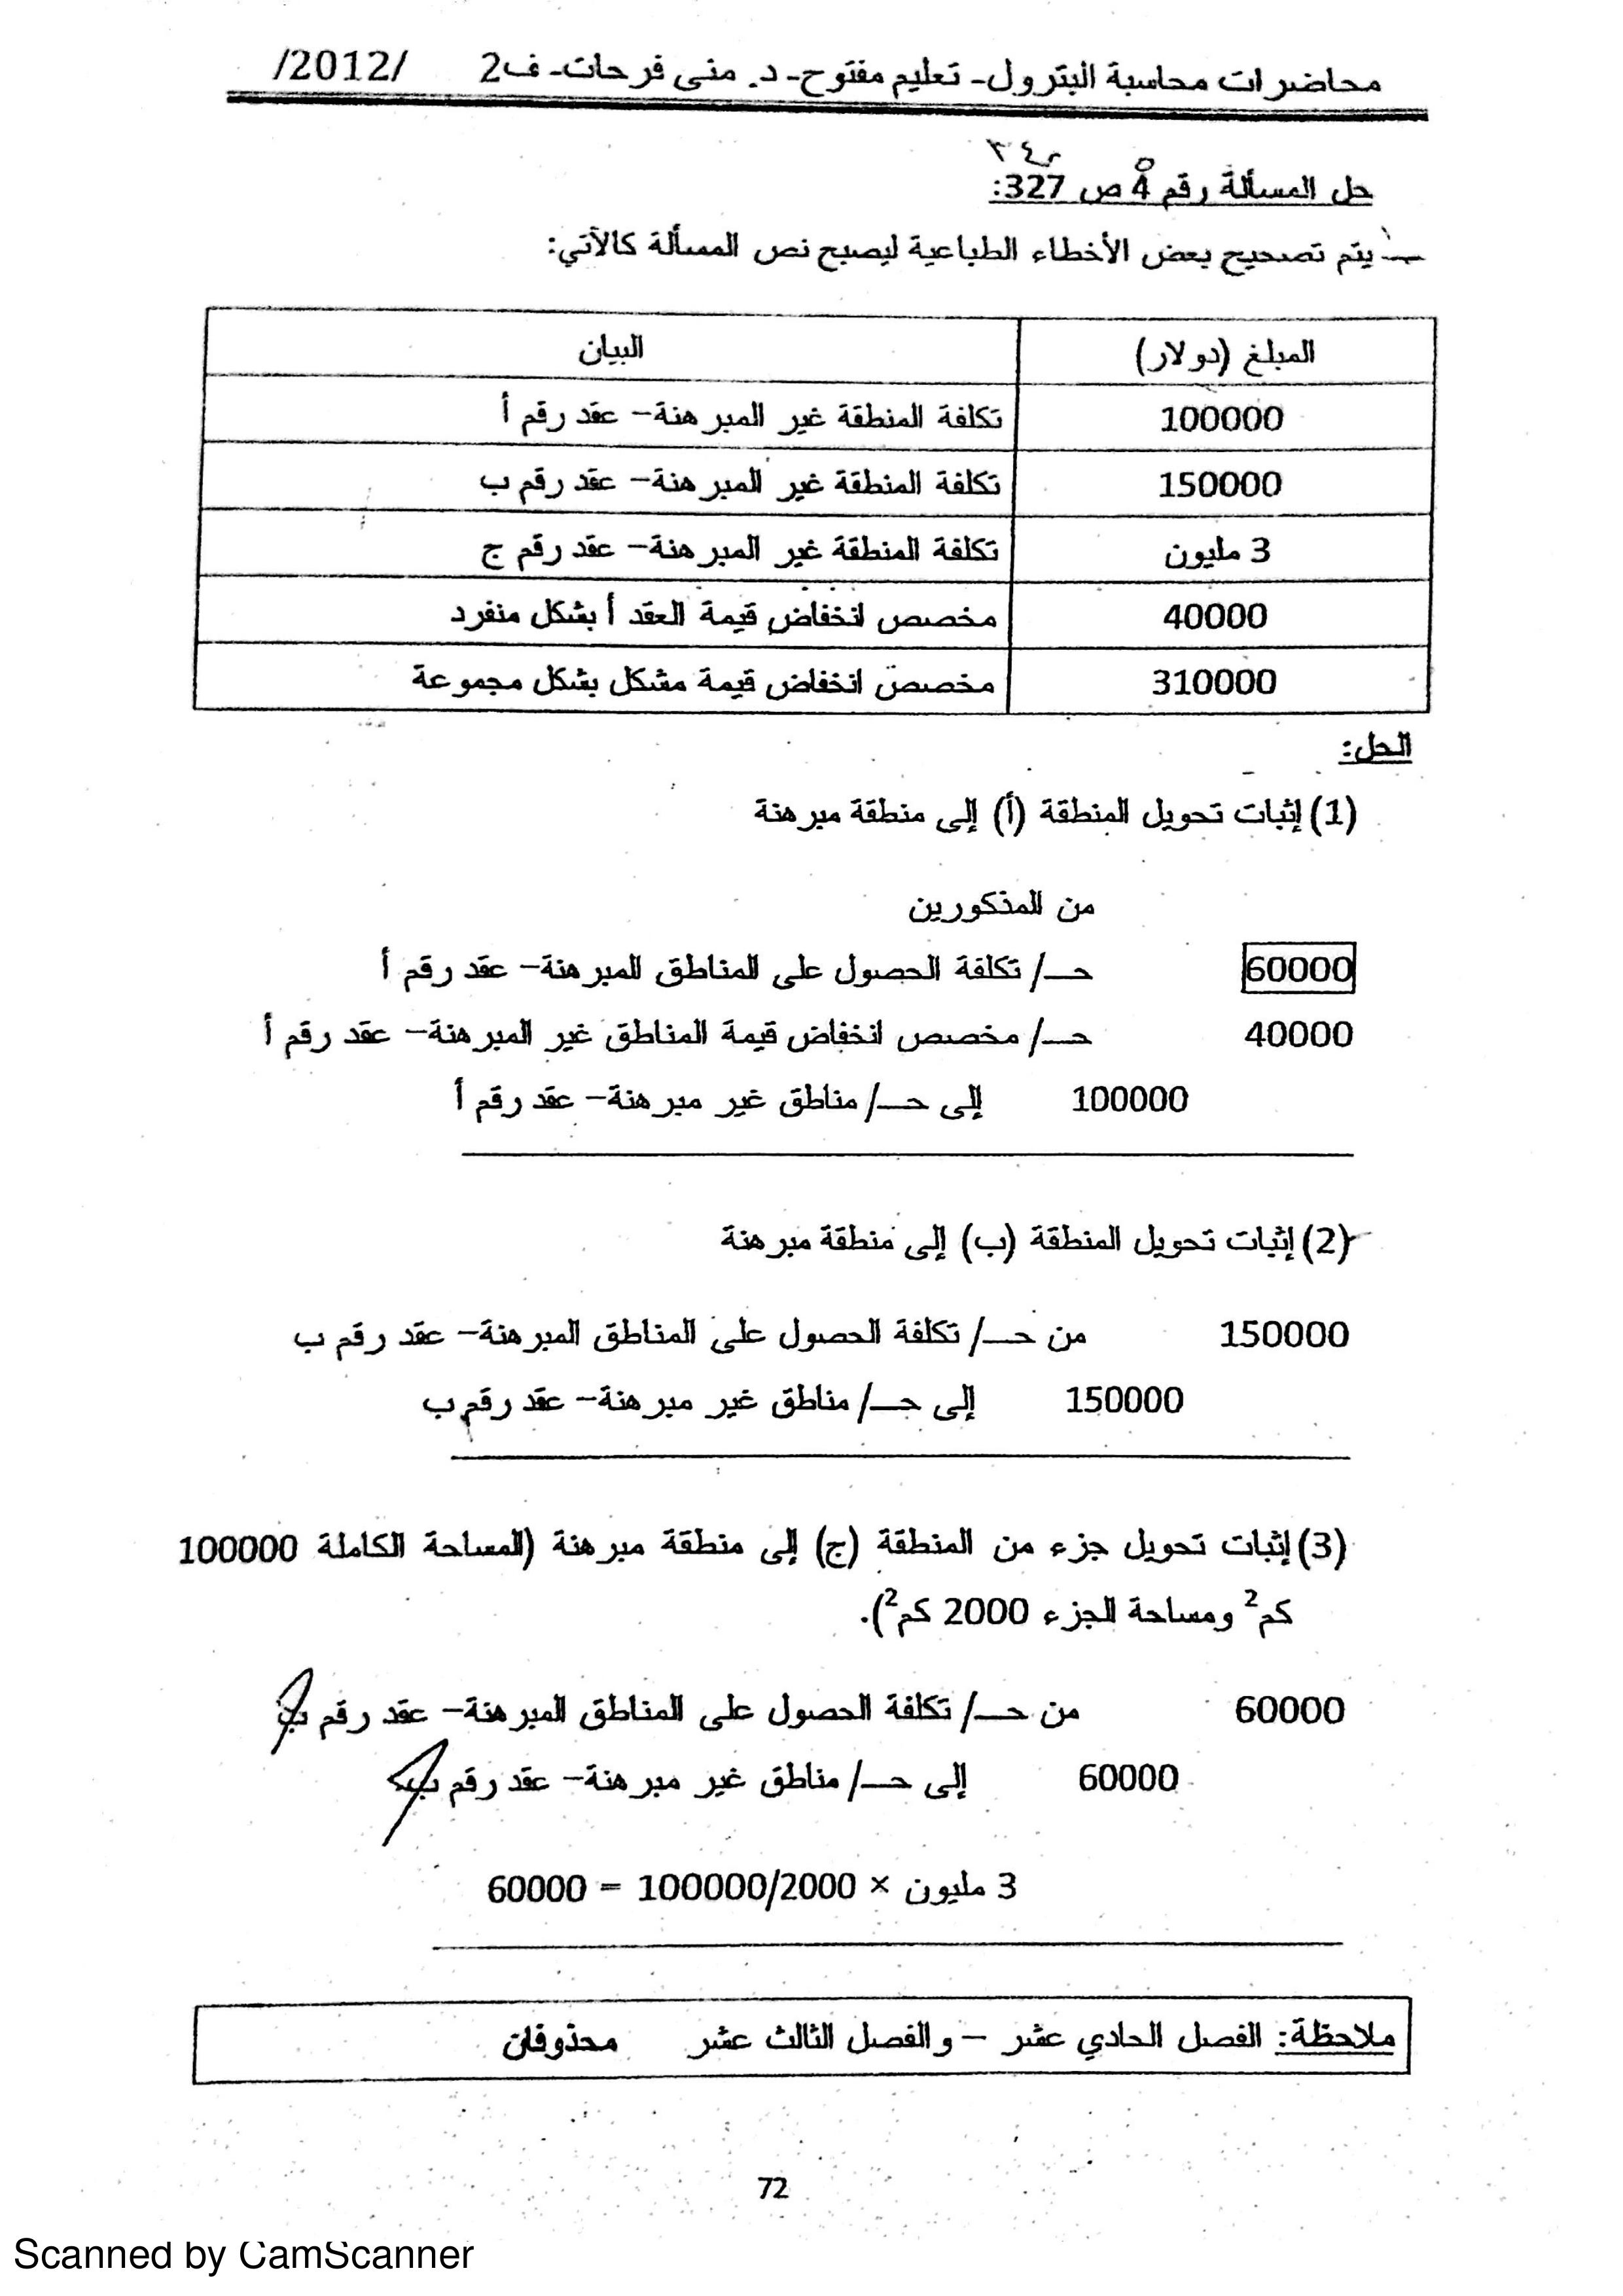 محاضرات محاسبة البترول- تعليم مفتوح- د. منى فرحات- ف2 /2012/
٣٤٢
حل المسألة رقم 4 ص 327:
5
يتم تصحيح بعض الأخطاء الطباعية ليصبح نص المسألة كالآتي:
المبلغ (دولار) البيان
100000 تكلفة المنطقة غير المبرهنة– عقد رقم أ
150000 تكلفة المنطقة غير المبرهنة– عقد رقم ب
3 مليون تكلفة المنطقة غير المبرهنة– عقد رقم ج
40000 مخصص انخفاض قيمة العقد أ بشكل منفرد
310000 مخصص انخفاض قيمة مشكل بشكل مجموعة
الحل:
(1) إثبات تحويل المنطقة (أ) إلى منطقة مبرهنة
من المذكورين
60000 حـ/ تكلفة الحصول على المناطق المبرهنة– عقد رقم أ
40000 حـ/ مخصص انخفاض قيمة المناطق غير المبرهنة– عقد رقم أ
100000 إلى حـ/ مناطق غير مبرهنة– عقد رقم أ
(2) إثبات تحويل المنطقة (ب) إلى منطقة مبرهنة
150000 من حـ/ تكلفة الحصول على المناطق المبرهنة– عقد رقم ب
150000 إلى حـ/ مناطق غير مبرهنة– عقد رقم ب
(3) إثبات تحويل جزء من المنطقة (ج) إلى منطقة مبرهنة (المساحة الكاملة 100000
كم² ومساحة الجزء 2000 كم²).
60000 من حـ/ تكلفة الحصول على المناطق المبرهنة– عقد رقم ب
60000 إلى حـ/ مناطق غير مبرهنة– عقد رقم ب
3 مليون × 100000/2000 = 60000
ملاحظة: الفصل الحادي عشر – والفصل الثالث عشر محذوفان
72
Scanned by CamScanner